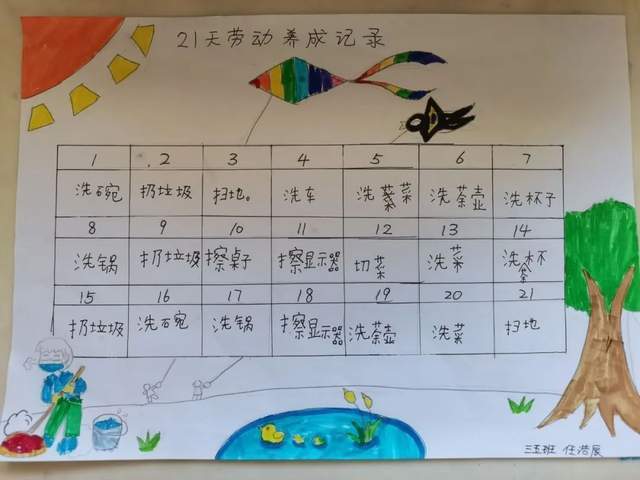 21天劳动养成记录
1 2 3 4 5 6 7
洗碗 扔垃圾 扫地。 洗车 洗菜 洗茶壶 洗杯子
8 9 10 11 12 13 14
洗锅 扔垃圾 擦桌子 擦显示器 切菜 洗菜 洗杯
15 16 17 18 19 20 21
扔垃圾 洗碗 洗锅 擦显示器 洗茶壶 洗菜 扫地
三五班 任浩辰